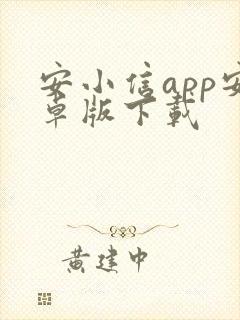 安小信app安
卓版下载
黄建中